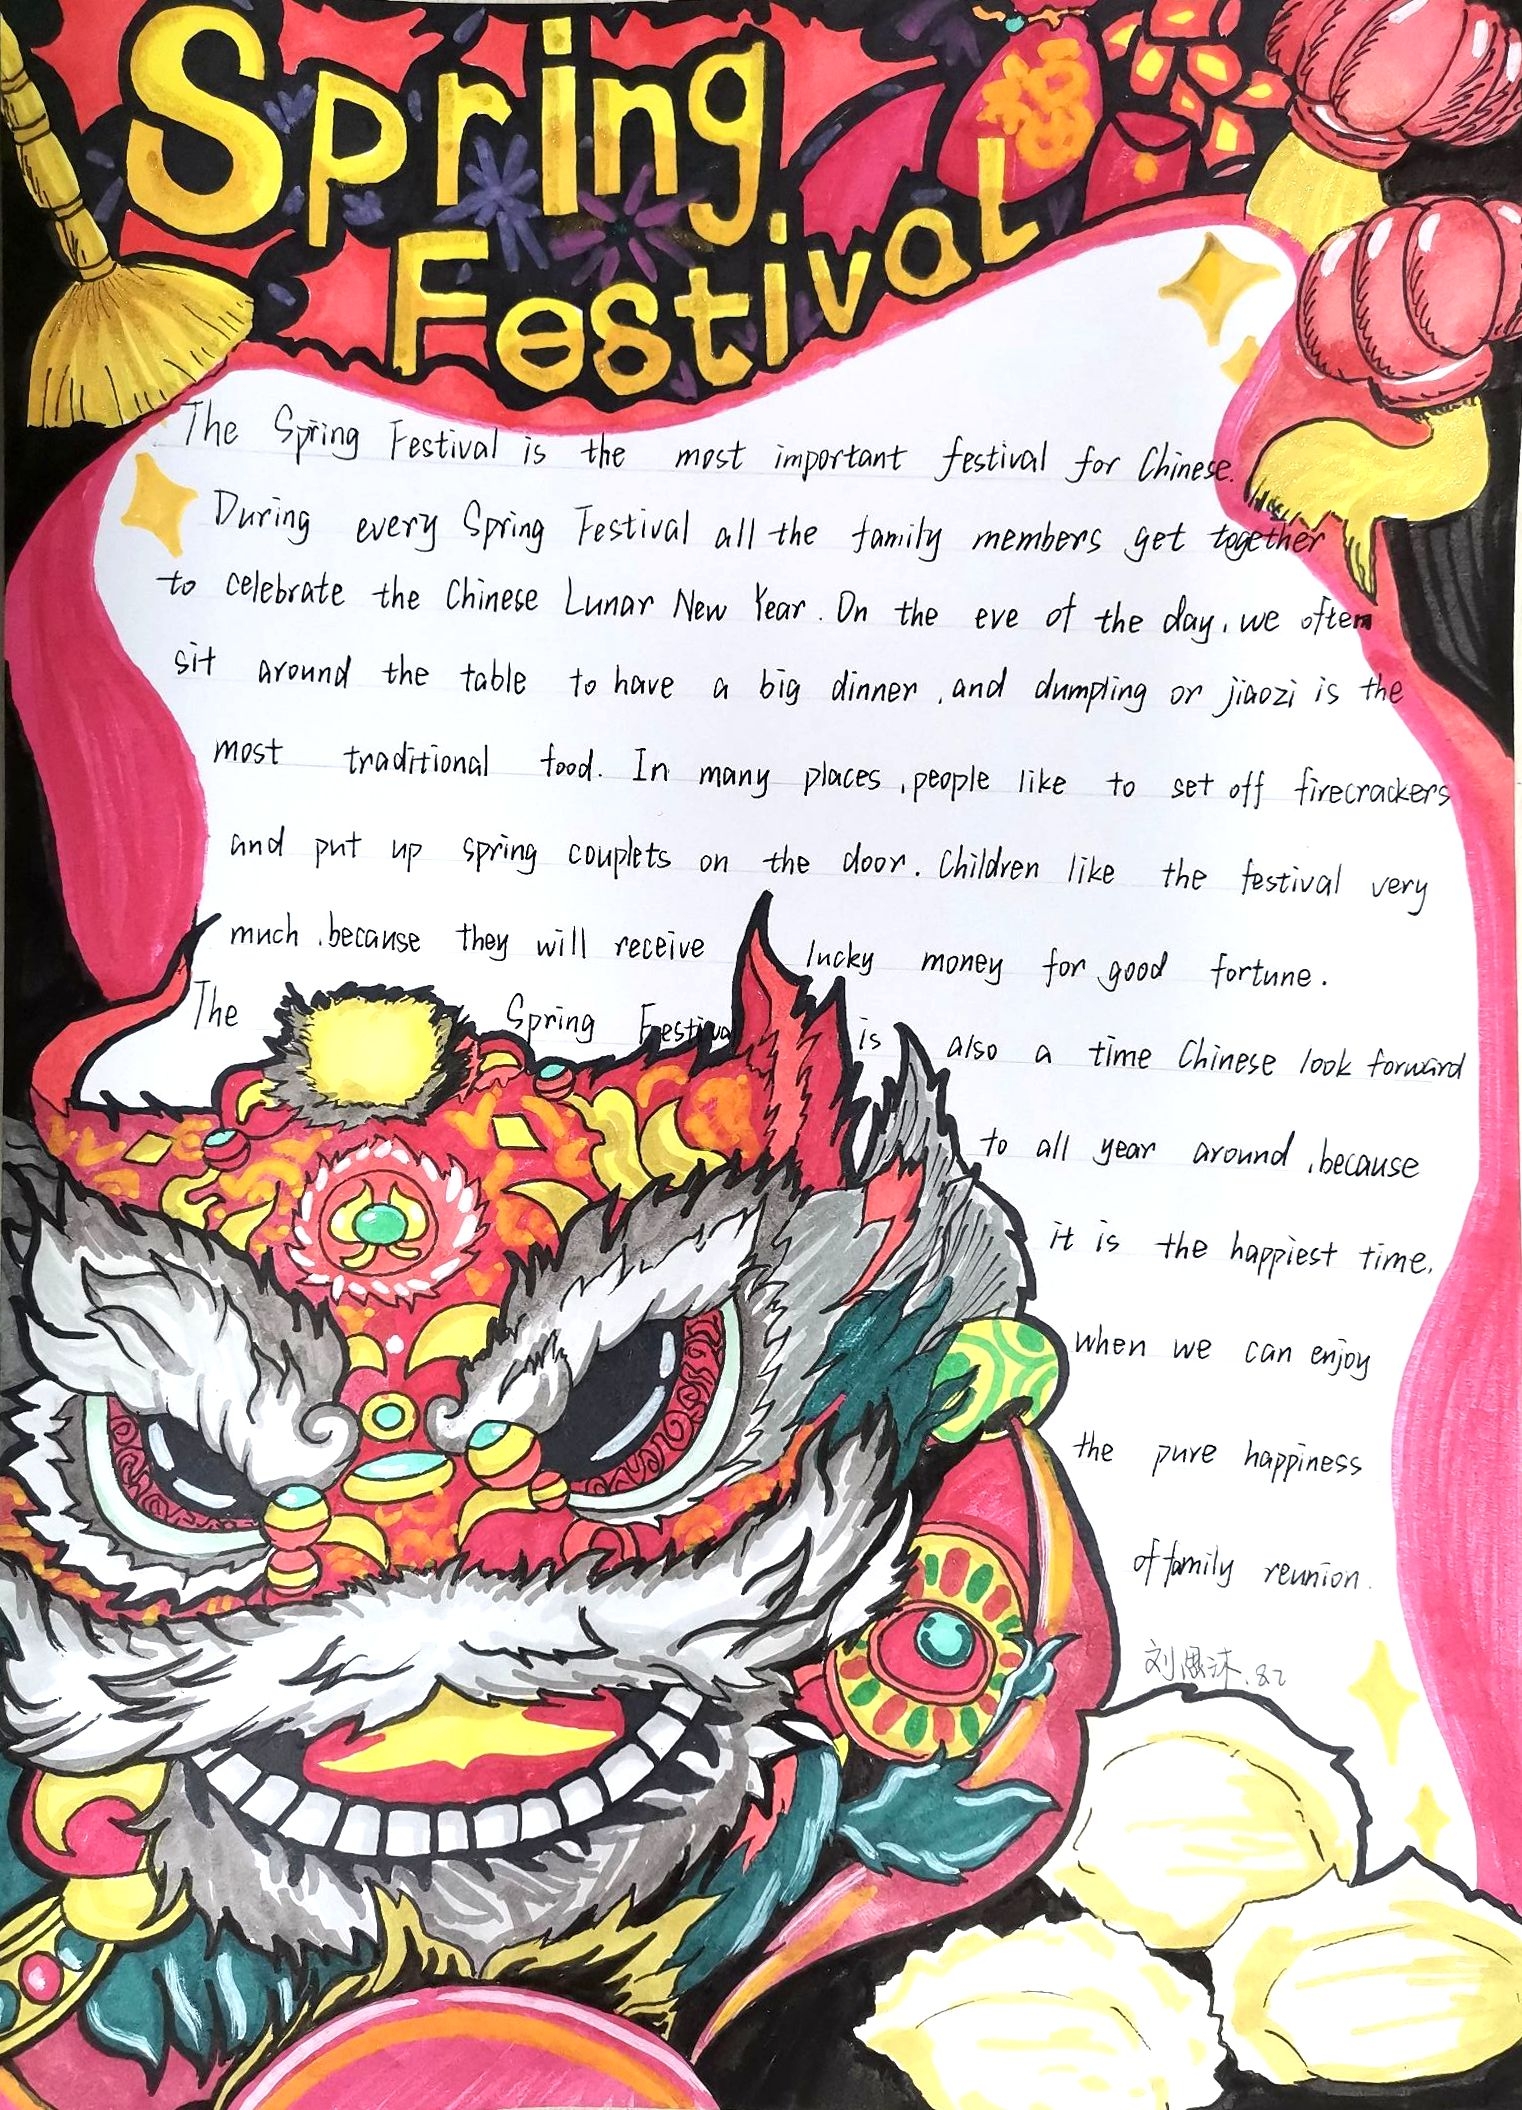 Spring
福
Festival
The Spring Festival is the most important festival for Chinese.
During every Spring Festival all the family members get together
to celebrate the Chinese Lunar New Year. On the eve of the day, we often
sit around the table to have a big dinner, and dumpling or jiaozi is the
most traditional food. In many places, people like to set off firecrackers
and put up spring couplets on the door. Children like the festival very
much, because they will receive lucky money for good fortune.
The Spring Festival is also a time Chinese look forward
to all year around, because
it is the happiest time,
when we can enjoy
the pure happiness
of family reunion.
刘思沐. 8.2